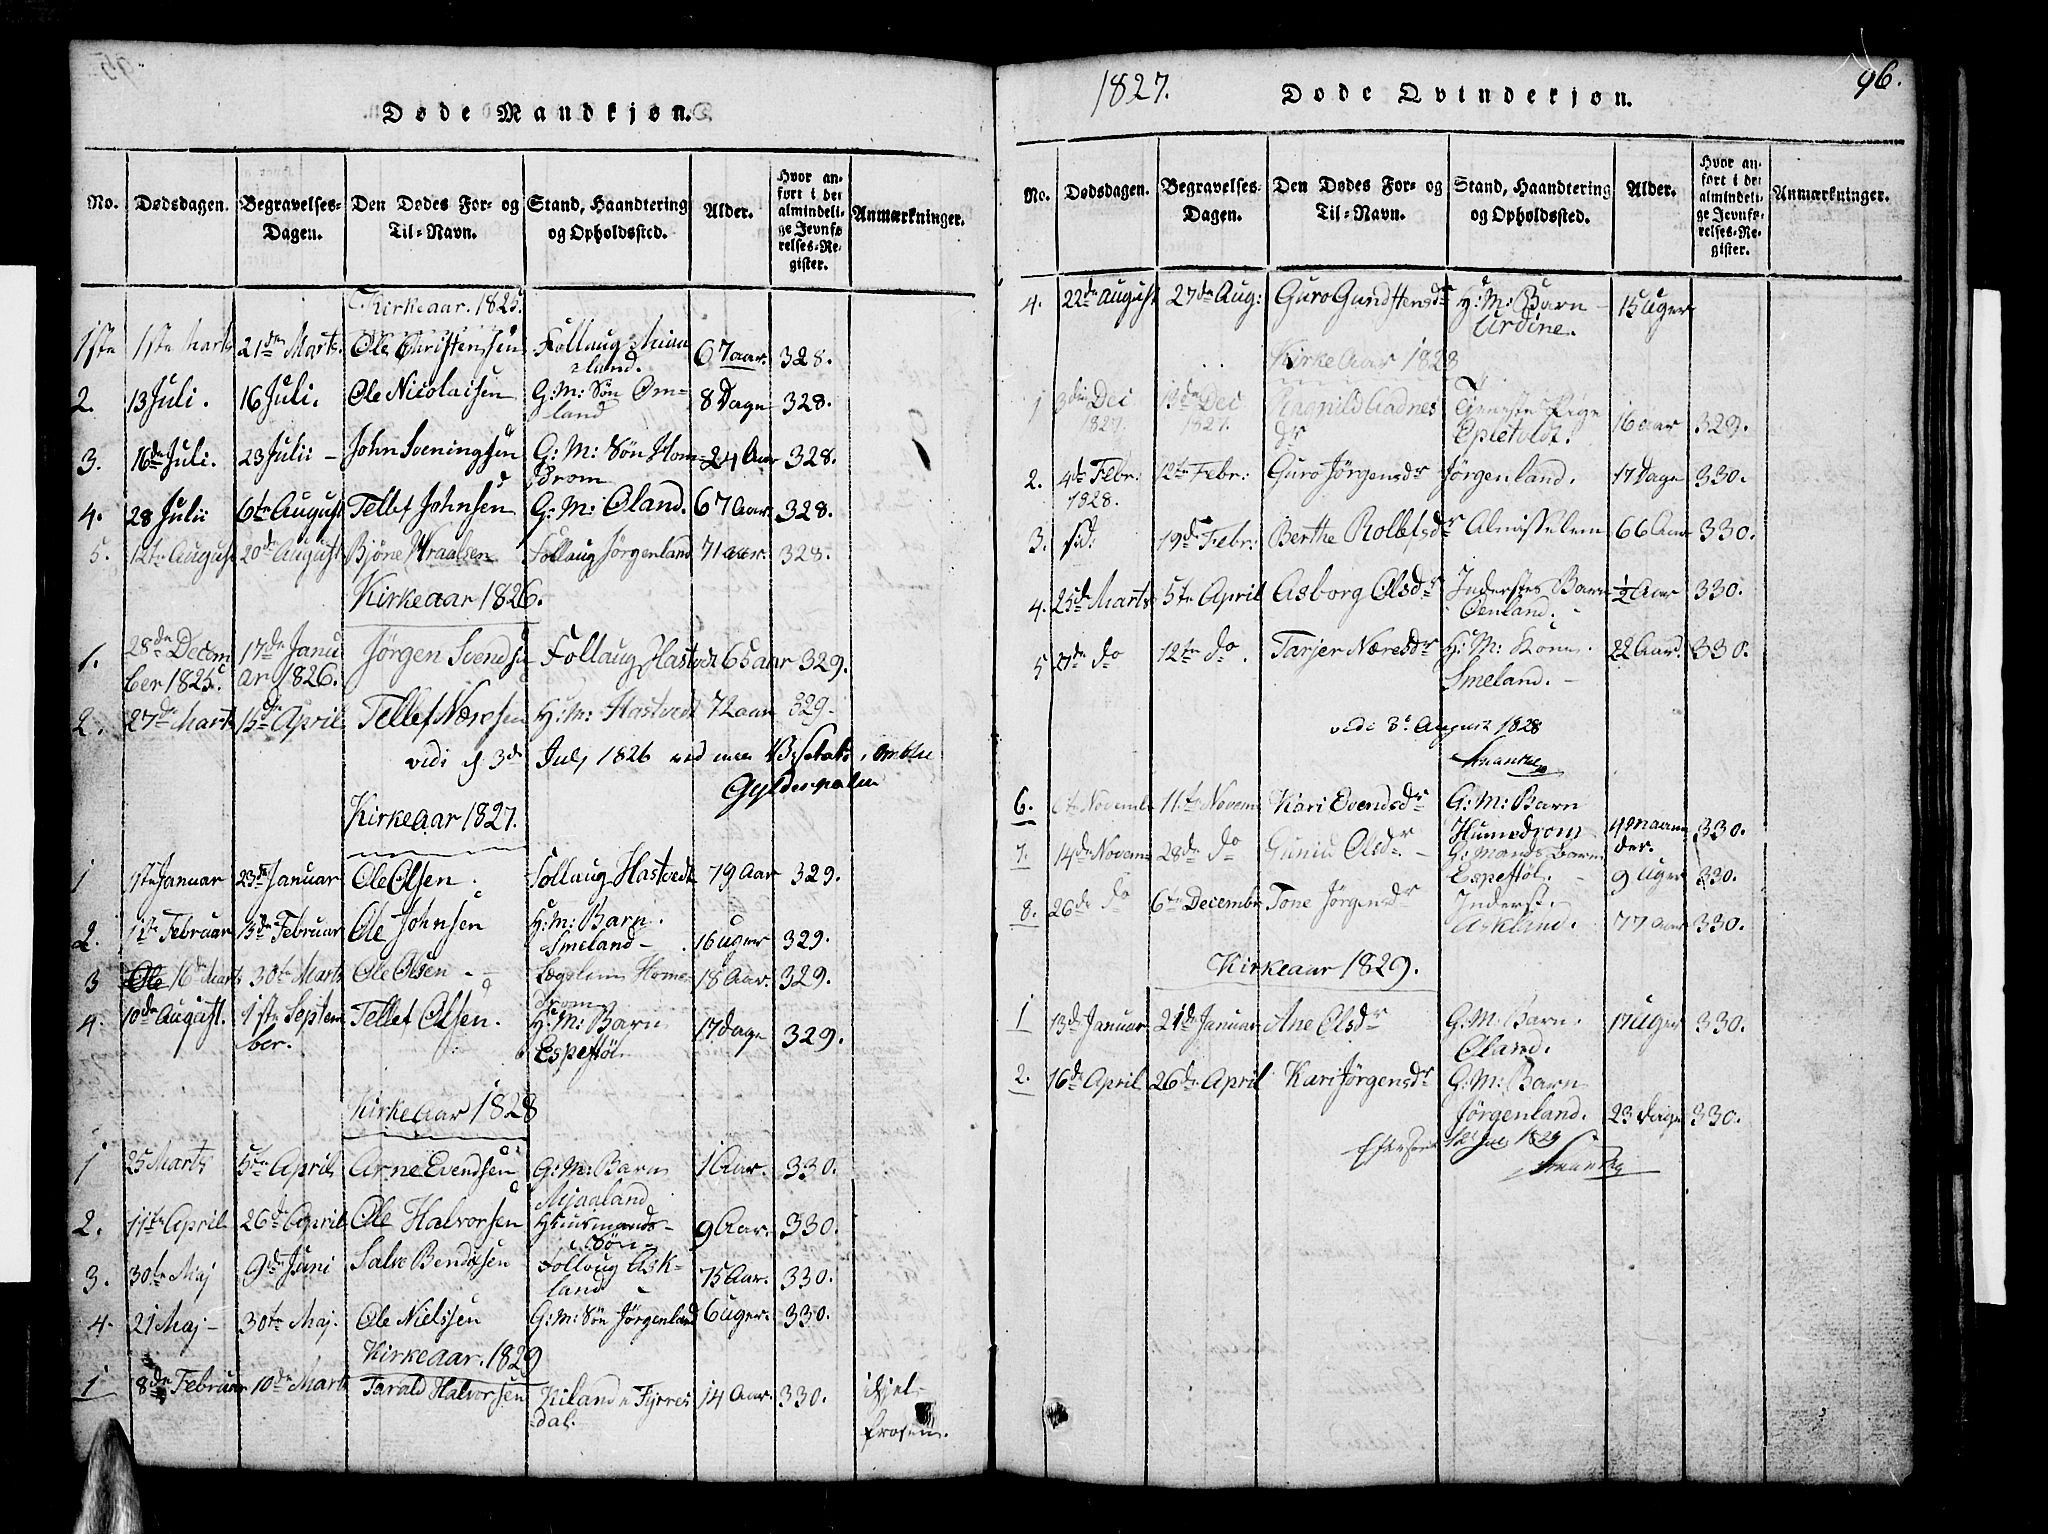 Døde Mandkjøn.
No. Dødsdagen. Begravelses-Dagen. Den Dødes For- og Til-Navn. Stand, Haandtering og Opholdssted. Alder. Hvor anført i det almindelige Jevnførelses-Register. Anmærkninger.
Kirkeaar. 1825.
1ste 1ste Marts 21de Marts. Ole Christensen Follaug Miaa
land. 67 aar. 328.
2. 13 Juli. 16 Juli. Ole Nicolaisen G: M: Søn Øm-
land 8 Dage 328.
3. 16de Juli. 23 Julii – John Sveningsen G: M: Søn Hom-
drom 24 Aar 328.
4. 28 Julii 6te August Tellef Johnsen G: M: Øland. 67 Aar 328.
5. 12te August 20de August Bjøne Wraalsen Follaug Jørgenland 71 aar. 328.
Kirkeaar 1826.
1. 28de Decem 17de Janu Jørgen Svendsen Follaug Hastvedt 65 aar 329.
ber 1825. ar 1826.
2. 27de Marts 13de April Tellef Næresen H: M: Hastvedt 72 aar 329-
vidi d 3de July 1826 ved min Visitats i Omblie
Gyldenpalm
Kirkeaar 1827.
1 9te Januar 23de Januar Ole Olsen. Follaug Hastvedt 79 Aar 329.
2. 1te Februar 13de Februar Ole Johnsen H: M: Barn.
Smeland – 16 Uger 329.
3 16de Marts 30te Marts Ole Olsen – Lægslem Home-
drom 18 Aar. 329.
4. 10de August. 1ste Septem Tellef Olsen. H: M: Barn 17 Dage 329.
ber. Espestøl.
Kirkeaar 1828
1 25 Marts 5te April Arne Evendsen G: M: Barn 1 Aar. 330.
Mjaaland
2. 11te April 26de April Ole Halvorsen Huusmands-
Søn – 9 Aar. 330.
3. 30te Maj 9de Juni Salve Bendixsen Follaug Ask-
land 75 Aar. 330.
4. 21 Maj – 30te Maj. Ole Nielssen G: M: Søn Jørgenland 6 Uger. 330.
Kirkeaar. 1829
1 8de Februar 10de Marts Tarald Halvorsen Kiland i Fyrres 14 Aar. 330. ihjel-
dal. frosen.
1827. Døde Qvindekjøn. 96.
No. Dødsdagen. Begravelses-Dagen. Den Dødes For- og Til-Navn. Stand, Haandtering og Opholdssted. Alder. Hvor anført i det almindelige Jevnførelses-Register. Anmærkninger.
4. 22de August 27de Aug: Guro Gundstensdr H: M: Barn – 15 Uger
Urdine.
Kirke Aar 1828
1 3die Dec 13de Dec Ragnild Aadnes Tjeneste Pige 16 aar 329.
1827. 1827. dr Epletvedt.
2. 4de Febr: 12te Febr: Guro Jørgensdr Jørgenland. 17 Dage 330.
1828.
3. sid: 19de Febr: Berthe Rollefsdr Almisselem 66 Aar 330.
4. 25de Marts 5te April Asborg Olsdr Inderstes Barn ½ Aar 330.
Oenland.
5 3de do 12te do. Tarjer Næresdr H: M: Kone. 22 Aar. 330.
Smeland. –
vidi 3e August 1828
6. 6te Novembr 11te Novem Kari Evendsdr G: M: Barn
Humedrom 4 Maane 330.
der.
7. 14de Novem 28de do Guniu Olsdr – G: Mands barn
Espestøl. – 9 Uger 330.
8. 26de do 6te Decembr Tone Jørgensdr Inderst.
Askland. 77 aar 330.
Kirkeaar 1829.
1 13de Januar 21de Januar Ane Olsdr G: M: Barn. 17 Uger 330.
Øland.
2. 16de April 26de April Kari Jørgensdr G: M: Barn
Jørgenland. 23 Dage 330.
Efterseet 12 Jul 1829